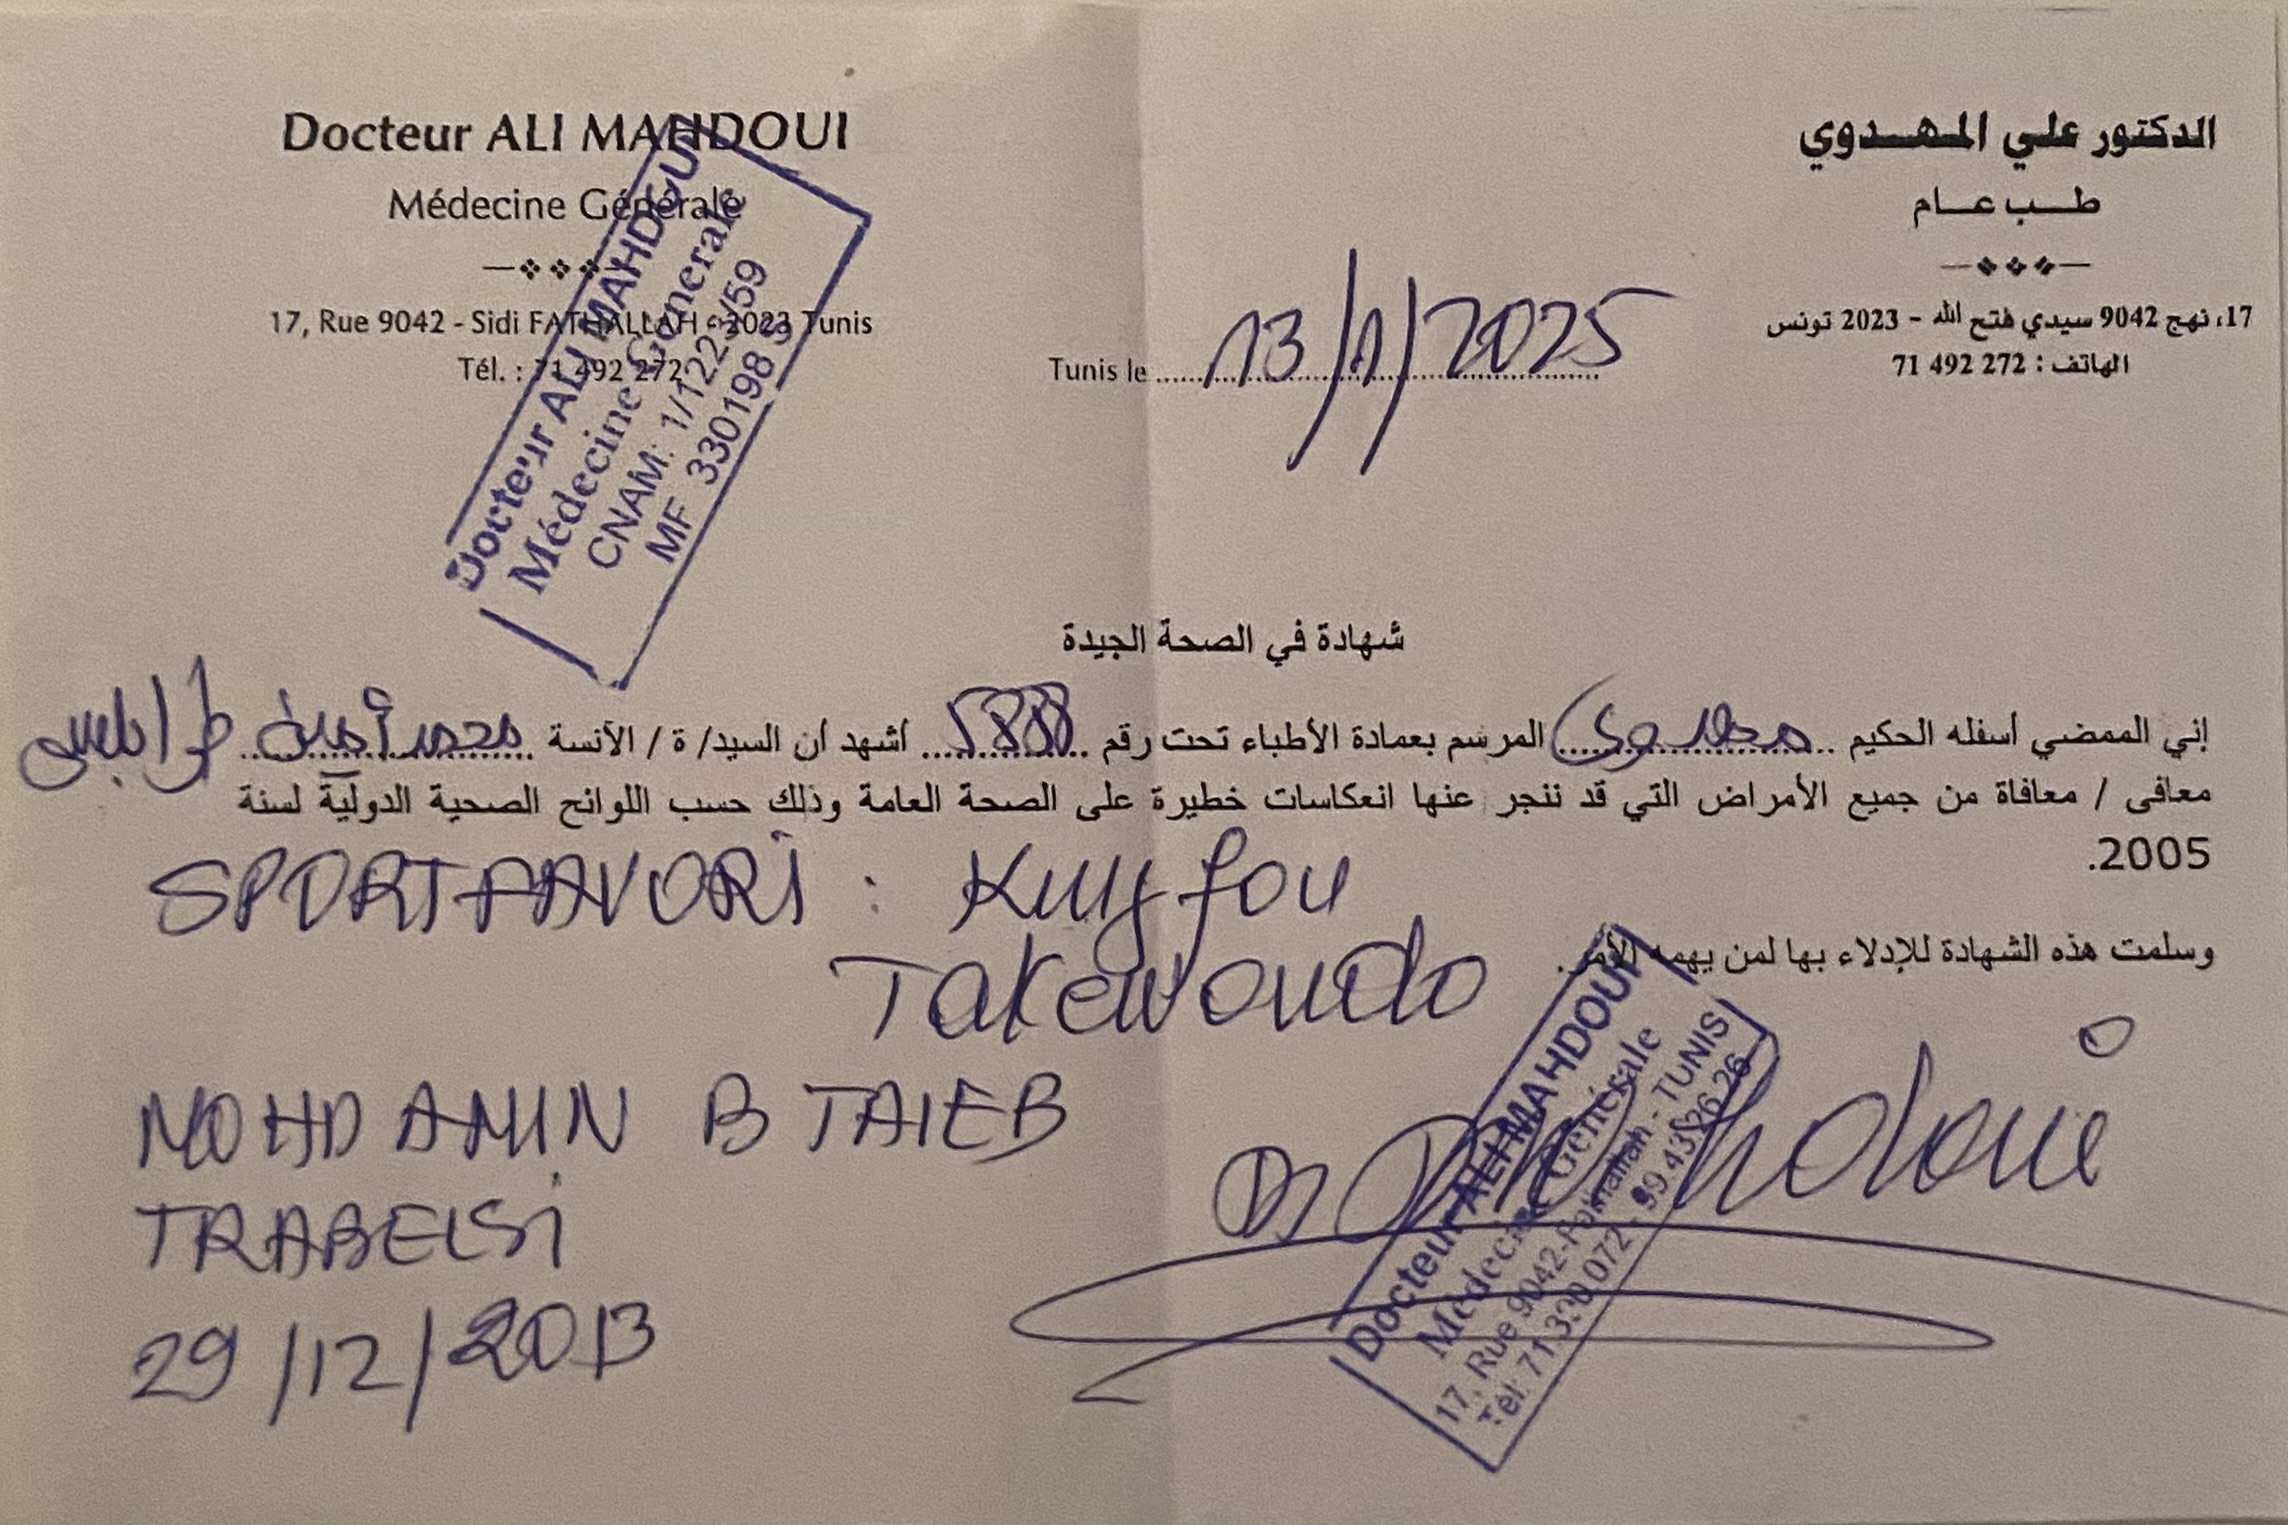 Docteur ALI MAHDOUI
Médecine Générale
17, Rue 9042 - Sidi FATHALLAH - 2023 Tunis
Tél. : 71 492 272
الدكتور علي المهدوي
طب عام
17، نهج 9042 سيدي فتح الله - 2023 تونس
الهاتف : 272 492 71
Docteur ALI MAHDOUI
Médecine Generale
CNAM: 1/12223/59
MF 330198 S
Tunis le 13/1/2025
شهادة في الصحة الجيدة
إني الممضي أسفله الحكيم مهدوي المرسم بعمادة الأطباء تحت رقم أشهد أن السيد/ ة / الآنسة محمد أمين طرابلسي
معافى / معافاة من جميع الأمراض التي قد ننجر عنها انعكاسات خطيرة على الصحة العامة وذلك حسب اللوائح الصحية الدولية لسنة
2005.
SPORT FAVORI : Kung fou
Takewoundo
وسلمت هذه الشهادة للإدلاء بها لمن يهمه الأمر.
MOHD AMIN B TAIEB
TRABELSI
29/12/2013
Dr Mahdoui
Docteur ALI MAHDOUI
Médecine Générale
17, Rue 9042-Fathallah - TUNIS
Tél: 71 330 072 - 99 43 26 26